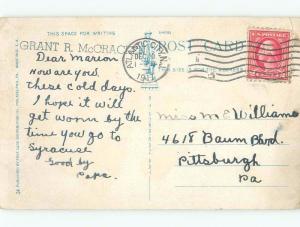 THIS SPACE FOR WRITING
GRANT R. McCRAC
POST CARD
Dear Marion
How are you
these cold days.
I hope it will
get worm by the
time you go to
Syracuse
Good by
Papa.
Miss McWilliams
4618 Baum Blvd.
Pittsburgh
Pa